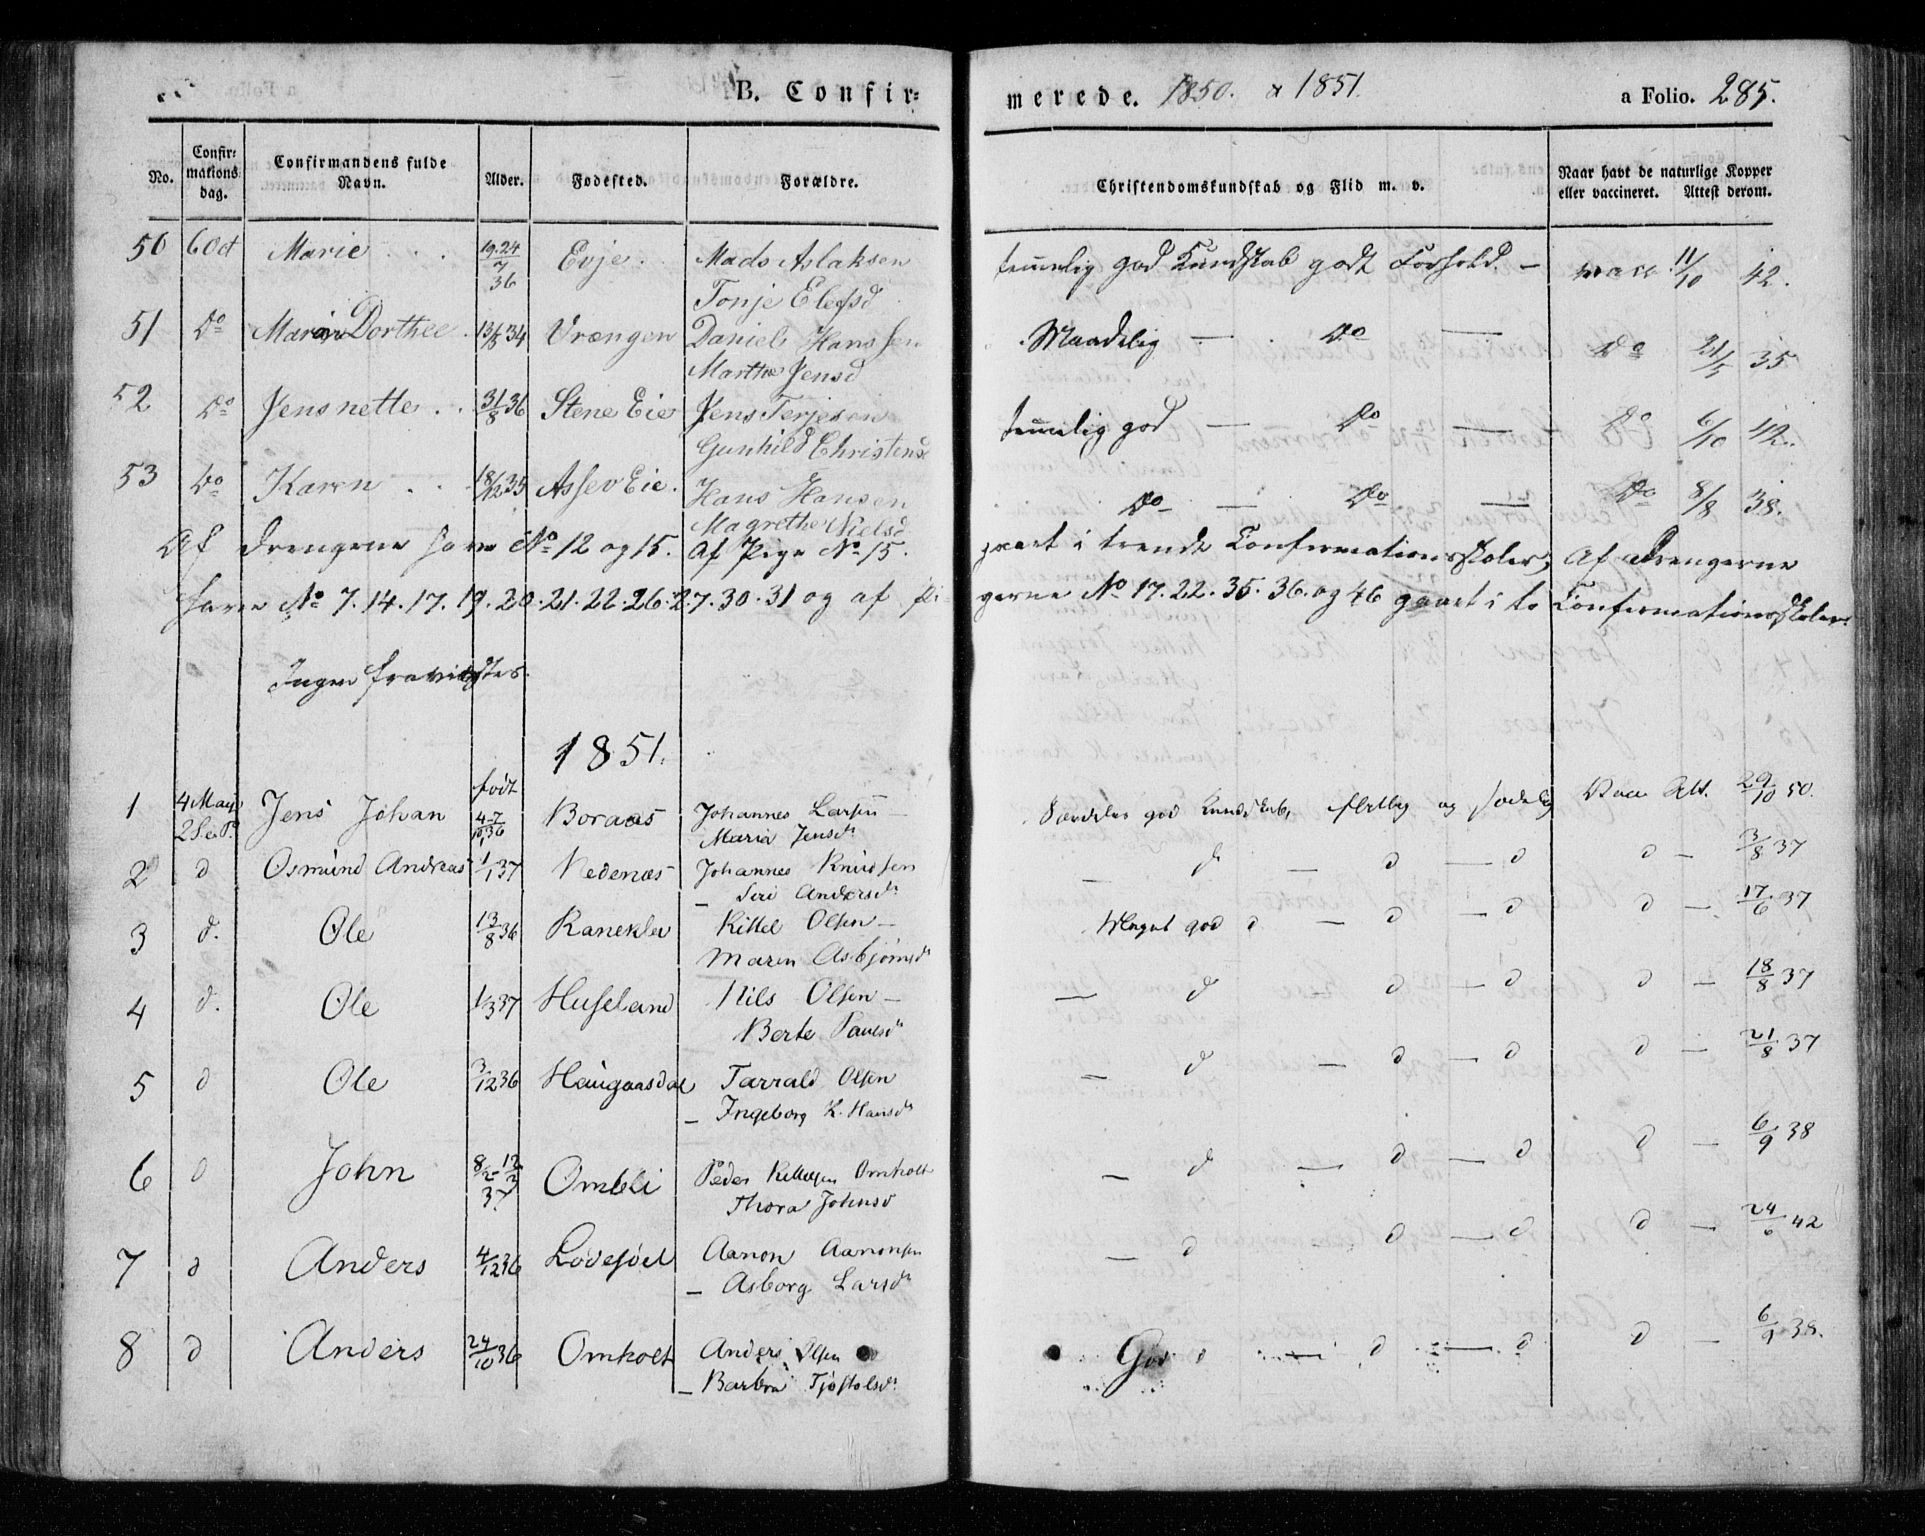 B. Confir-
merede. 1850. & 1851.
a Folio. 285.
No. Confir-mations dag. Confirmandens fulde Navn. Alder. Fødested. Forældre. Christendomskundskab og Flid m. v. Naar havt de naturlige Kopper eller vaccineret. Attest derom.
50 6 Oct Marie 19.24/7 36 Evje. Mads Aslaksen temmelig god Kundskab godt Forhold. — vacc. 11/10 42.
Tonje Elefsd
51 Do Maren Dorthee 13/5 34 Vrængen Daniel Hanssen Maadelig — Do — Do 21/5 35
Marthe Jensd
52 Do Jensnette 31/8 36 Stene Eie Jens Terjesen temmelig god — Do — Do 6/10 42.
Gunhild Christensd
53 Do Karen 18/12 35 Assev Eie. Hans Hansen Do — Do — Do 8/8 38.
Magrethe Nielsd
Af Drengene have No 12 og 15. Af Pige No 15. gaaet i trende Confirmationsskoler; Af Drengerne
have No 7. 14. 17. 19. 20. 21. 22. 26. 27. 30. 31 og af Pi- gerne No 17. 22. 35. 36. og 46 gaaet i to Confirmationsskoler.
Ingen fraviistes.
1851.
født
1 4 May Jens Johan 4-7/10 36 Boraas Johannes Larsen — Særdeles god Kundskab, flittig og sædelig Vacc Att. 29/10 50.
Maria Jensd
2 d Osmund Andreas 1/1 37 Nedenæs Johannes Knudsen — d — d — d d — 3/8 37
— Siri Andersd
3 d. Ole 13/8 36 Raneklev Kittel Olsen — Meget god d — d — d d — 17/6 37
Maren Asbjørnsd
4 d. Ole 1/3 37 Huseland Nils Olsen — — d d — d d — 18/8 37
Berte Taulsd
5 d Ole 3/12 36 Haugaasdal Tarrald Olsen — d — d — d d — 21/8 37
— Ingeborg K. Hansd
6 d John 8/2-12/2 37 Ombli Peder Kittelsen Omholt — d — d — d d — 6/9 38
Thora Johnsd
7 d Anders 4/12 36 Lodesøel Aanon Aanonsen — d — d — d d — 24/6 42
— Asborg Larsd
8 d Anders 24/10 36 Omholt Anders Olsen God d — d — d d — 6/9 38.
— Barbra Tjøstolsd